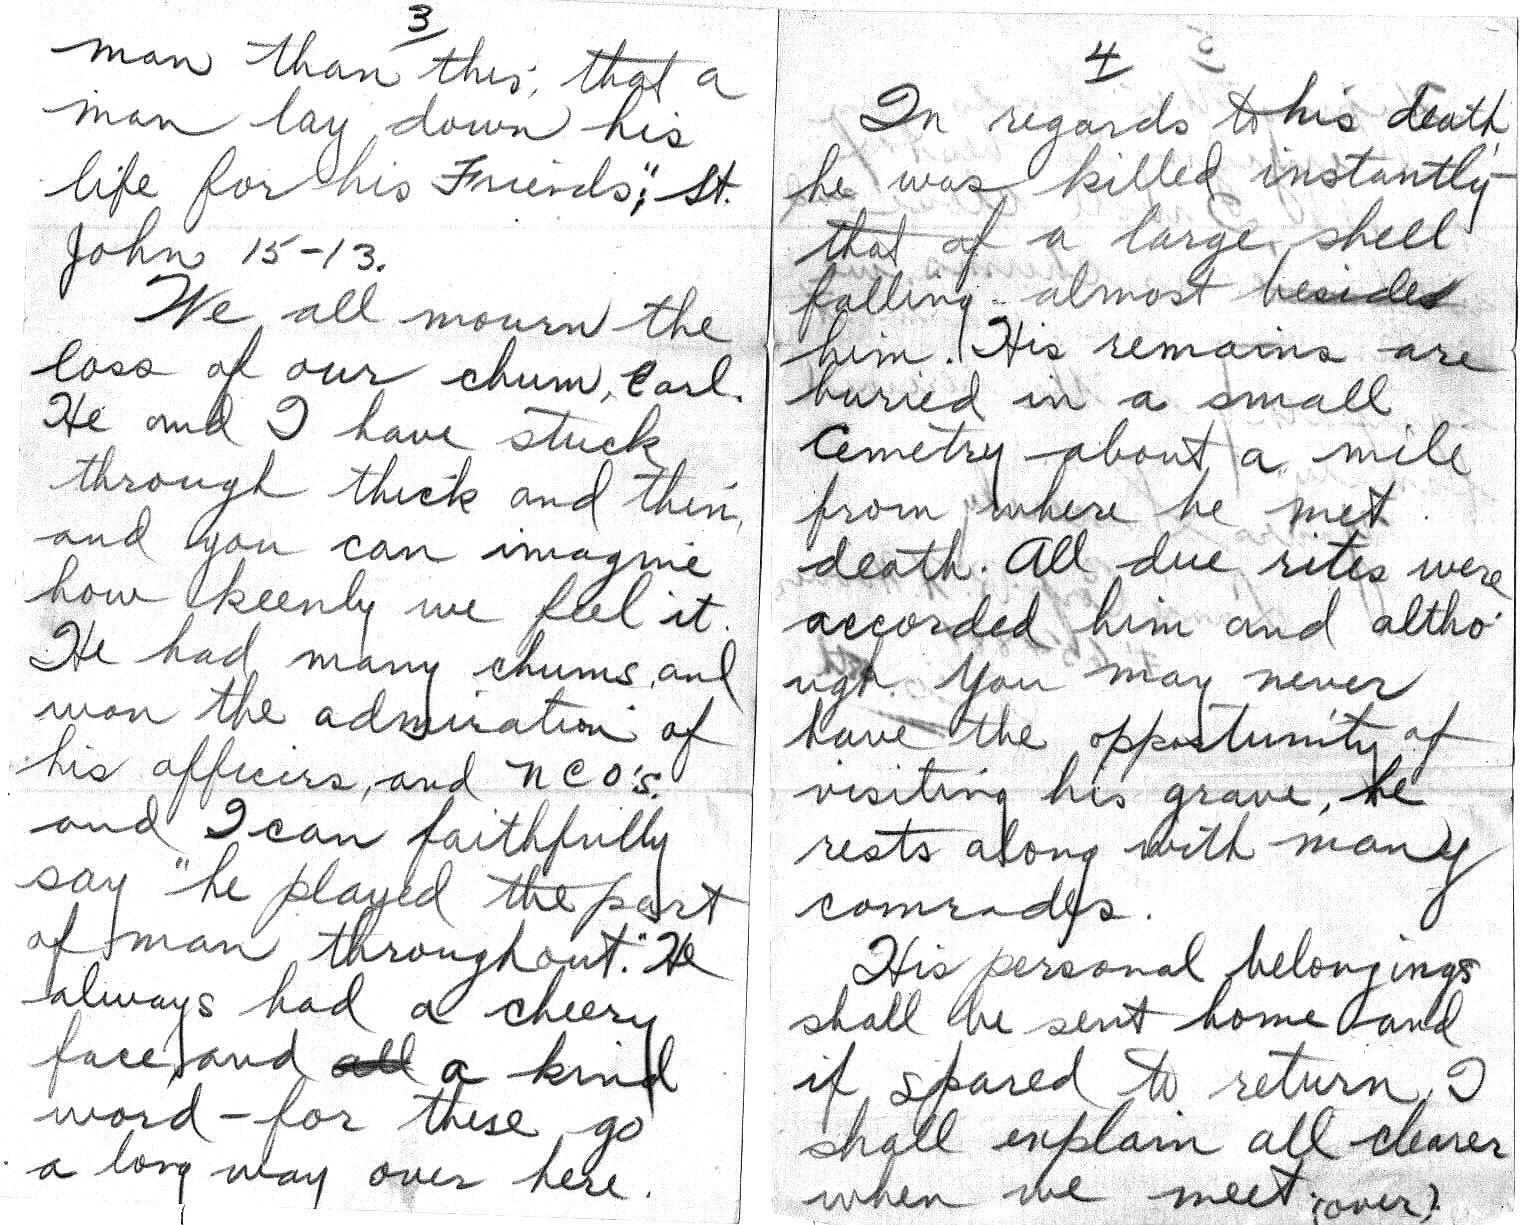 3
man than this, that a
man lay down his
life for his Friends"; St.
John 15-13.
We all mourn the
loss of our chum, Carl.
He and I have stuck
through thick and thin,
and you can imagine
how keenly we feel it.
He had many chums, and
won the admiration of
his officers, and NCO's.
and I can faithfully
say "he played the part
of man throughout." He
always had a cheery
face, and all a kind
word - for these go
a long way over here.
4
In regards to his death,
he was killed instantly -
that of a large shell
falling - almost besides
him. His remains are
buried in a small
Cemetry about a mile
from where he met
death. All due rites were
accorded him and altho'
ugh you may never
have the opportunity of
visiting his grave, he
rests along with many
comrades.
His personal belongings
shall be sent home and
if spared to return, I
shall explain all clearer
when we meet. (over)